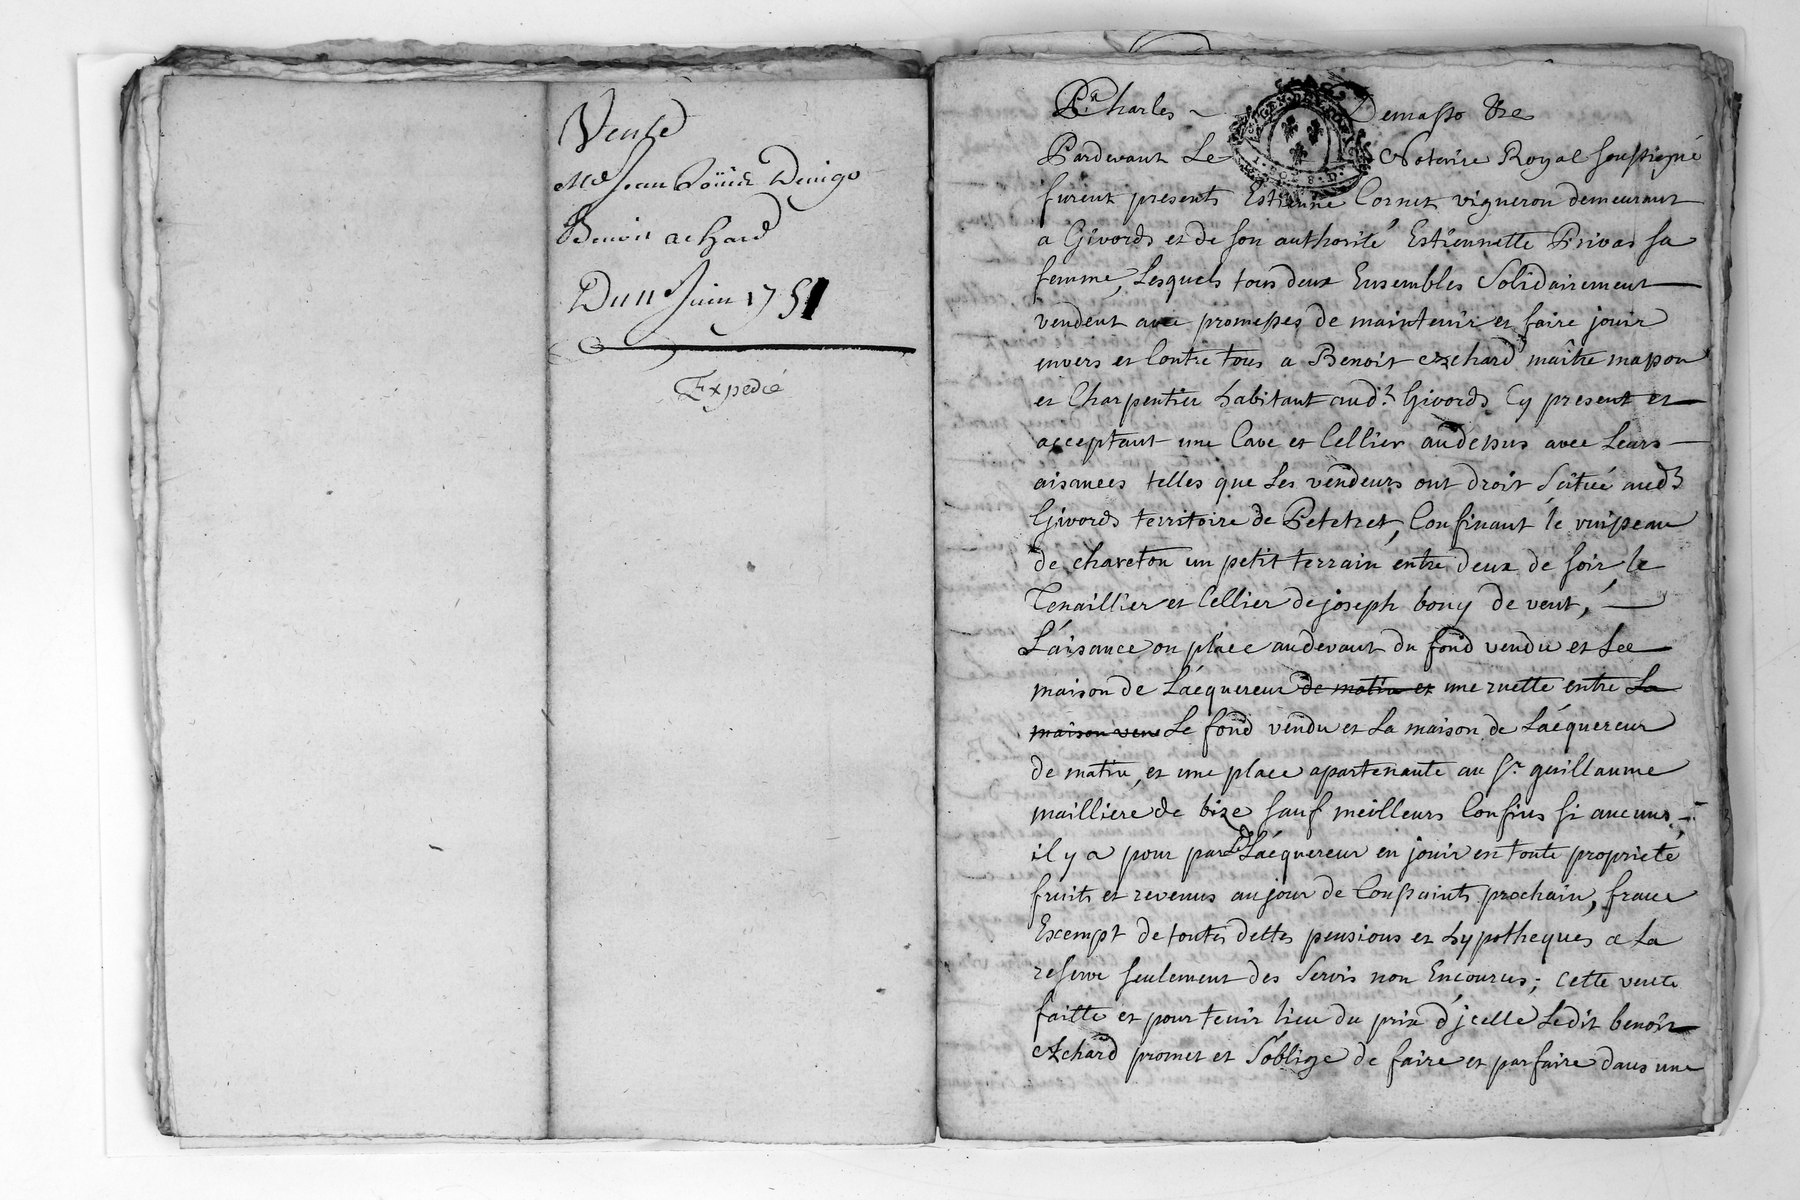 Vente
Benoit achard
Du 11e Juin 1751
Expedié
Charles
Pardevant Le Notaire Royal soussigné
furent presents Estienne Cornet vigneron demeurant
a Givords et de son authorité Estiennette Privas sa
femme, Lesquels tous deux Ensembles Solidairement
vendent avec promesses de maintenir et faire jouir
envers et Contre tous a Benoit Achard maître masson
et Charpentier habitant aud.t Givords Cy present et
acceptant une Cave et Cellier audessus avec Leurs
aisances telles que Les vendeurs ont droit Scitué aud.t
Givords territoire de Petetret, Confinant le ruisseau
de chareton un petit terrain entre deux de soir le
Tenaillier et Cellier de joseph bony de vent,
L'aisance ou place audevant du fond vendu et Lee
maison de L'aéquereur de matin et une ruette entre La
maison ven Le fond vendu et La maison de L'aéquereur
de matin, et une place apartenante au Sr. guillaume
mailliere de bize sauf meilleurs Confins si aucuns
il y a pour par Led. L'aéquereur en jouir en toute proprieté
fruits et revenus au jour de Toussaints prochain, franc
Exempt de toutes dettes pensions et hypotheques a La
reserve seulement des Servis non Encourus; cette vente
faitte et pour tenir lieu du prix d'jcelle Ledit benoit
Achard promet et S'oblige de faire et parfaire dans une